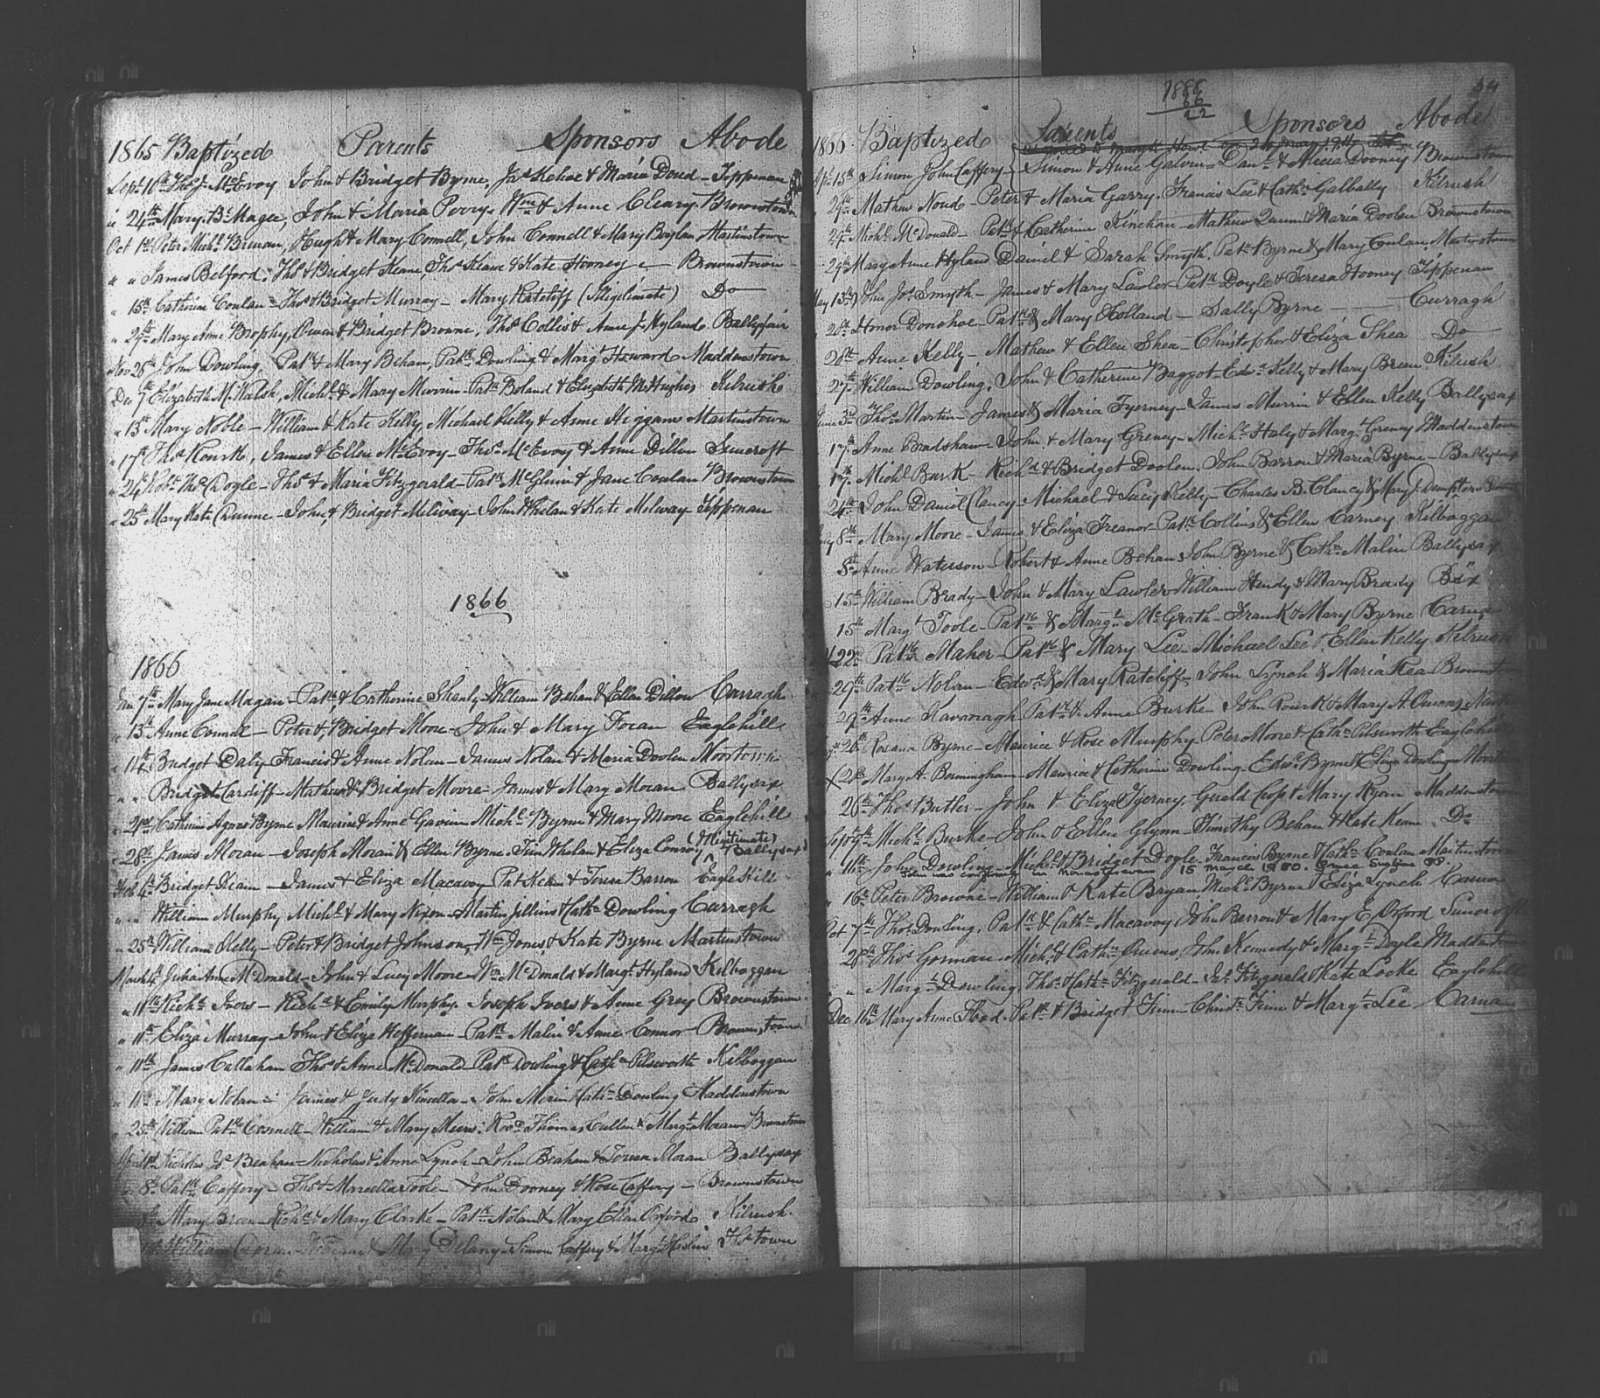 1865 Baptized Parents Sponsors Abode
Sept 10th Thos J. McEvoy John & Bridget Byrne, Jas Kehoe & Maria Doud - Tippenan
" 24th Mary Bt Magee, John & Maria Perry. Wm & Anne Cleary. Brownstown
Oct 1st Peter Michl Brennan, Hugh & Mary Connell, John Connell & Mary Boylan Martinstown
" " James Belford. Thos & Bridget Keane, Thos Keane & Kate Hooney - Brownstown
" 15th Catherine Conlan - Thos & Bridget Murray - Mary Ratcliff (Illigitimate) Do
" 29th Mary Anne Brophy, Owen & Bridget Browne, Thos Collis & Anne J. Hyland. Ballyfair
Nov 25th John Dowling, Patk & Mary Behan, Patk Dowling & Margt Howard Maddenstown
Dec 7th Elizabeth M. Walsh, Michl & Mary Murrin - Patk Boland & Elizabeth McHughes Kilrush
" 15th Mary Noble - William & Kate Kelly, Michael Kelly & Anne Higgans Martinstown
" 17th Thos Rourke, James & Ellen McEvoy - Thos McEvoy & Anne Dillon Suncroft
" 24th Robt Thos Doyle - Thos & Maria Fitzgerald - Patk McGlinn & Jane Conlan Brownstown
" 25th Mary Kate Quinne - John & Bridget Milway - John Whelan & Kate Melway Tippenan
1866
1866
Jan 7th Mary Jane Magan - Patk & Catherine Sheally - William Behan & Ellen Dillon Curragh
" 13th Anne Connor - Peter & Bridget Moore - John & Mary Foran Eaglehill
" 14th Bridget Daly Francis & Anne Nolan - James Nolan & Maria Doolan Moortown
" " Bridget Cardiff - Mathew & Bridget Moore - James & Mary Moran Ballysax
" 21st Catherine Agnes Byrne Maurice & Anne Gavin Michl Byrne & Mary Moore Eaglehill
" 28th James Moran - Joseph Moran & Ellen Byrne. Tim Whelan & Eliza Conroy (Illigitimate) Ballysax
Feb 4th Bridget Keain - James & Eliza Macavoy Pat Kean & Teresa Barron Eaglehill
" " William Murphy Michl & Mary Nixon - Martin Jellins & Cath Dowling Curragh
" 25th William Kelly - Peter & Bridget Johnson, Wm Jones & Kate Byrne Martinstown
March 4th Julia Ann McDonald - John & Lucy Moore Wm McDonald & Margt Hyland Kilboggan
" 11th Richd Ivors - Richd & Emily Murphy. Joseph Ivors & Anne Gray Brownstown
" 11th Eliza Murray - John & Eliza Heffernan - Patk Malin & Anne Connor - Brownstown
" 11th James Callaham Thos & Anne McDonald Patk Dowling & Cath Pilsworth Kilboggan
" 11th Mary Nolan - James & Judy Kinsella - John Morin Cath Dowling Maddenstown
" 25th William Patk Connell - William & Mary Mears. Revd Thomas Cullen & Margt Moran Brownstown
April 1st Nicholas Js Beahan - Nicholas & Anne Lynch - John Beahan & Teresa Moran Ballysax
" 8th Patk Caffery - Thos & Marcella Toole - John Dooney & Rose Caffery - Brownstown
Mary Breen - Richd & Mary Clarke - Patk Nolan & Mary Ellen Oxford Kilrush.
William & Mary Delany - Simon Caffery & Margt
1866
66
22
54
1866 Baptized Parents Sponsors Abode
Apr 15th Simon John Caffery - Simon & Anne Galvin - Danl & Maria Dooney Brownstown
" 29th Mathew Noud - Peter & Maria Garry. Francis Lee & Cath Galbally Kilrush
29th Michl McDonald - Patk & Catherine Kinehan - Mathew Quinn & Maria Doolan Brownstown
29th Mary Anne Hyland Daniel & Sarah Smyth, Patk Byrne & Mary Conlan, Martinstown
May 13th John Jos Smyth - James & Mary Lawler - Patk Doyle & Teresa Hooney Tippenan
20th Honor Donohoe - Patk & Mary Holland - Sally Byrne - Curragh
28th Anne Kelly - Mathew & Ellen Shea - Christopher & Eliza Shea Do
27th William Dowling, John & Catherine Baggot - Edwd Kelly & Mary Breen. Kilrush
June 3rd Thos Martin - James & Maria Tyerney - James Murrin & Ellen Kelly Ballysax
17th Anne Bradshaw - John & Mary Greney - Michl Haly & Margt Greney Maddenstown
17th Michl Burk - Richd & Bridget Doolan, John Barron & Maria Byrne - Ballysax
24th John Daniel Clancy - Michael & Lucy Kelly - Charles B. Clancy & Mary J. Dempster
July 8th Mary Moore - James & Eliza Treanor - Patk Collins & Ellen Carney Kilboggan
8th Anne Waterson - Robert & Anne Behan, John Byrne & Cathn Malin Ballysax
15th William Brady - John & Mary Lawler William Hendy & Mary Brady
15th Margt Toole - Patk & Margt McGrath - Frank & Mary Byrne Carna
22nd Patk Maher - Patk & Mary Lee - Michael Lee & Ellen Kelly Kilrush
29th Patk Nolan - Edwd & Mary Ratcliff - John Lynch & Maria Rea Brownstown
29th Anne Kavanagh Patk & Anne Burke - John Rourk & Mary A. Owens
26th Rosana Byrne - Maurice & Rose Murphy Peter Moore & Cath Pilsworth Eaglehill
26th Mary A. Bermingham - Maurice & Catherine Dowling - Edwd Byrne & Eliza Dowling
26th Thos Butler - John & Eliza Tyerney - & Mary Ryan Maddenstown
Sept 9th Michl Burke - John & Ellen Glynn - Timothy Behan & Kate Kean. Do
" 16th John Dowling - Michl & Bridget Doyle. Francis Byrne & Cath Conlan Martinstown
" 16th Peter Browne - William & Kate Bryan Michl Byrne & Eliza Lynch Carna
Oct 7th Thos Dowling. Patk & Cath Macavoy John Barron & Mary E. Oxford Suncroft
28th Thos Gorman - Michl & Cath Owens, John Kennedy & Margt Doyle
" " Margt Dowling, Thos & Cath Fitzgerald - Jas Fitzgerald & Kate Locke Eaglehill
Dec 16th Mary Anne Flood - Patk & Bridget Finn - Christr Finn & Margt Lee Carna